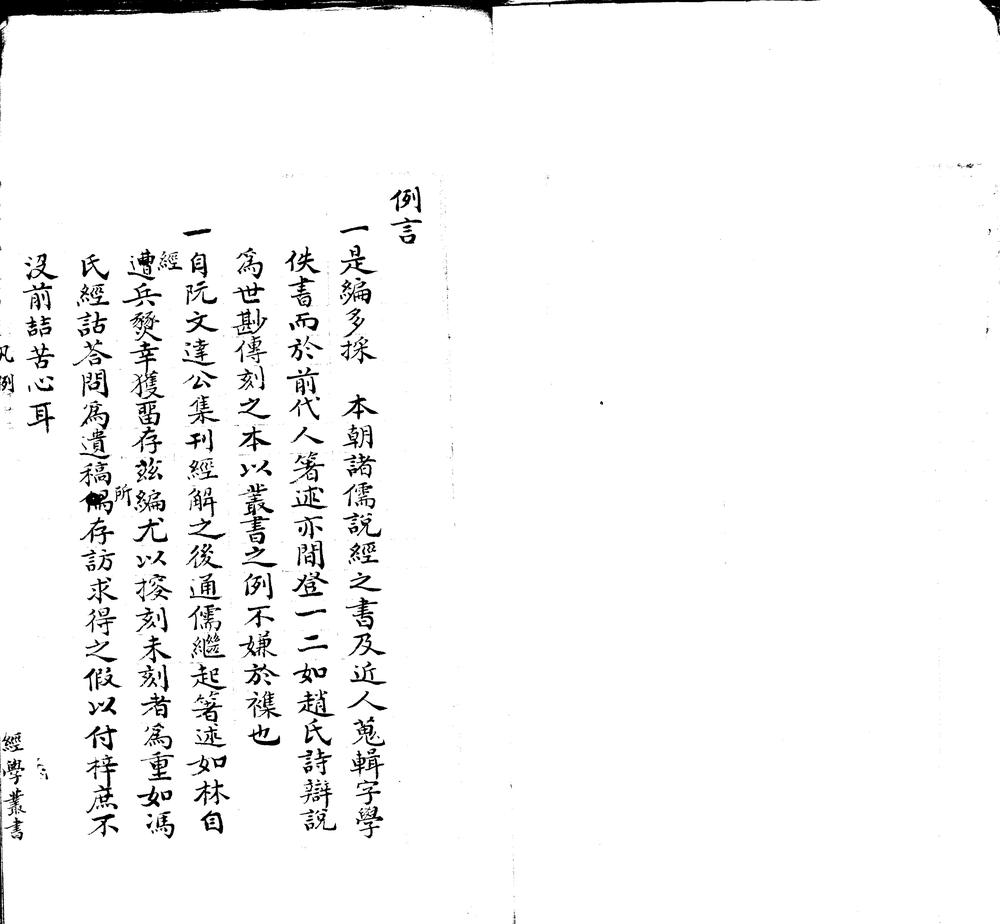 例言
一是編多採　本朝諸儒說經之書及近人蒐輯字學
佚書而於前代人箸述亦間登一二如趙氏詩辯說
爲世尠傳刻之本以叢書之例不嫌於襍也
一自阮文達公集刊經解之後通儒繼起箸述如林自
經
遭兵燹幸獲畱存茲編尤以搉刻未刻者爲重如馮
氏經詁荅問爲遺稿所存訪求得之假以付梓庶不
沒前喆苦心耳
凡例
經學叢書